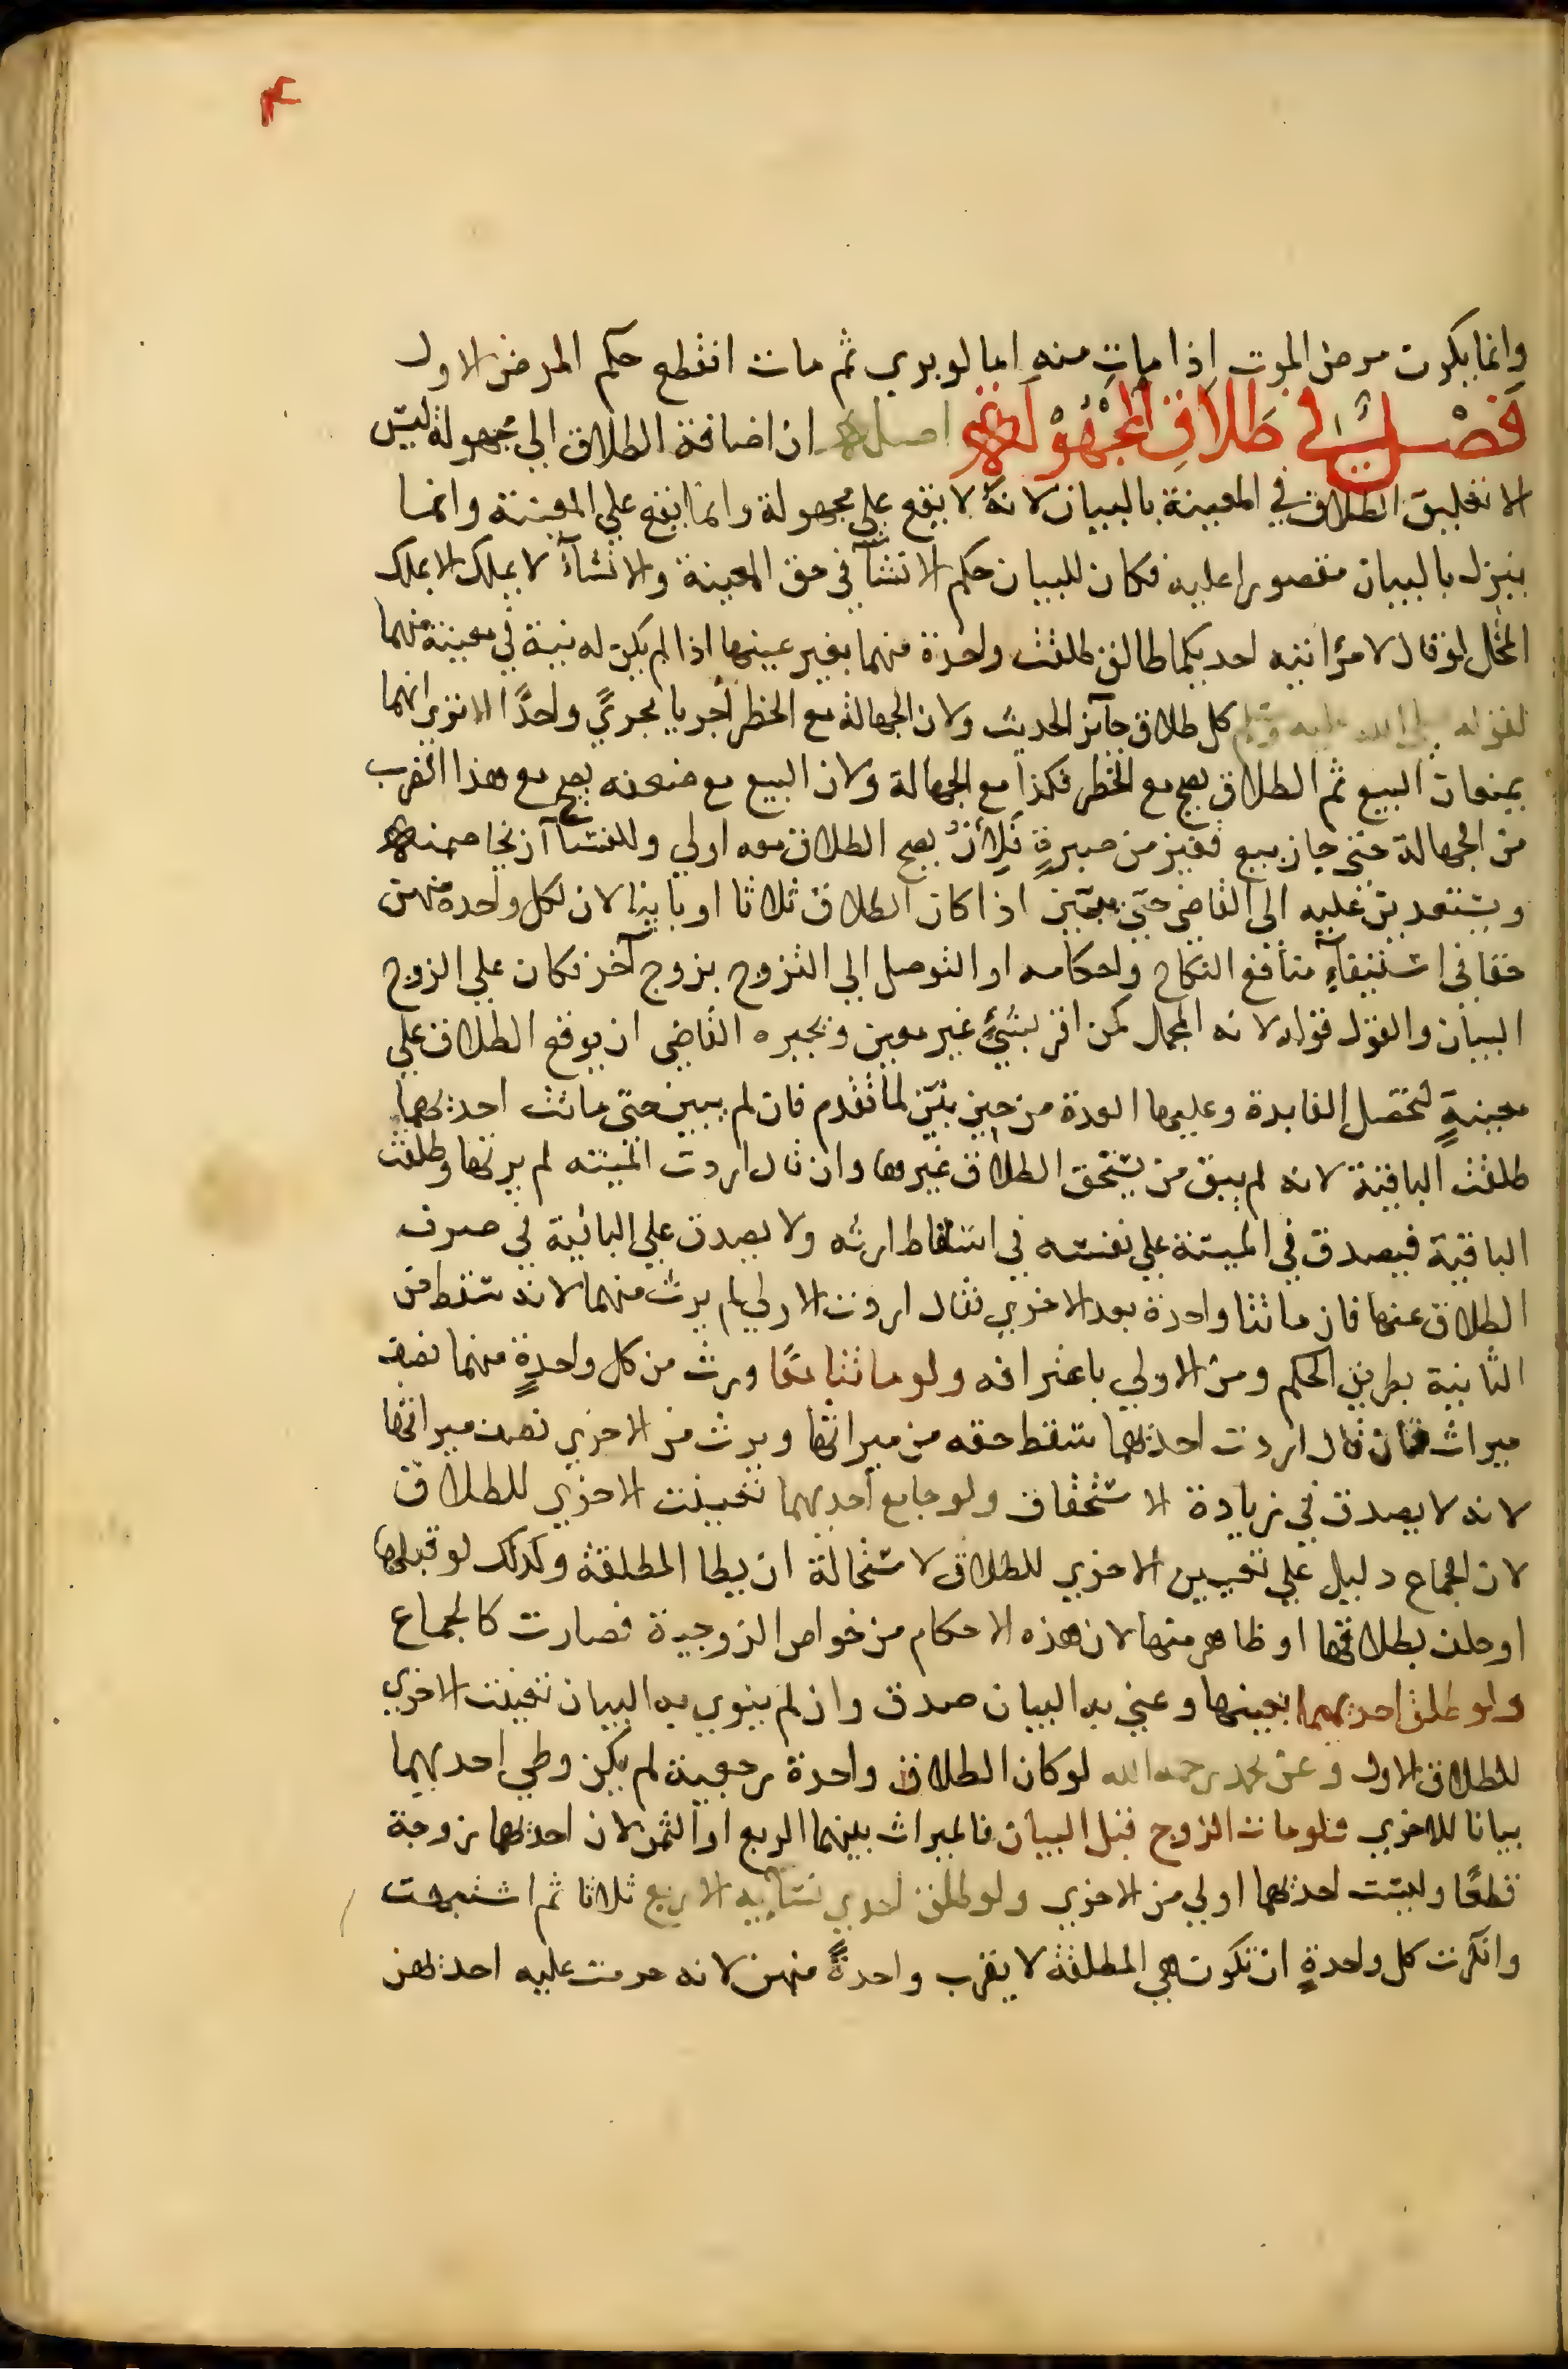 وانما يكون مرض الموت اذا مات منه اما لو بري ثم مات انقطع حكم المرض الاول
فصل في طلاق المجهولة اصله ان اضافة الطلاق الي مجهولة ليس
الا تعليق الطلاق في المعينة بالبيان لانه لا يقع علي مجهولة وانما يقع علي المعينة وانما
ينزل بالبيان مقصورا عليه فكان للبيان حكم الانشآ في حق المعينة والانشآء لا يملك الا بملك
المحال لو قال لامرأتيه احديكما طالق طلقت واحدة منهما بغير عينها اذا لم يكن له نية في معينة منهما
لقوله صلي الله عليه وسلم كل طلاق جآئز الحديث ولان الجهالة مع الخطر أجريا مجريً واحدًا الا تري انهما
يمنعان البيع ثم الطلاق يصح مع الخطر فكذا مع الجهالة ولان البيع مع ضعفه يصح مع هذا الضرب
من الجهالة حتي جاز بيع قفيز من صبرةٍ فلِأنْ يصح الطلاق معه اولي وللنسآ ان يخاصمنه
ويستعدين عليه الي القاضي حتي يبين اذا كان الطلاق ثلاثا او باينا لان لكل واحدة منهن
حقا في استيفآءِ منافع النكاح واحكامه او التوصل الي التزوج بزوج آخر فكان علي الزوج
البيان والقول قوله لانه المجمل كمن اقر بشئٍ غير معين ويجبره القاضي ان يوقع الطلاق علي
معينةٍ لتحصل الفايدة وعليها العدة من حين بيّن لما تقدم فان لم يبين حتي ماتت احديهما
طلقت الباقية لانه لم يبق من يستحق الطلاق غيرها وان قال اردت الميته لم يرثها وطلقت
الباقية فيصدق في الميتة علي نفسه في اسقاط ارثه ولا يصدق علي الباقية في صرف
الطلاق عنها فان ماتتا واحدة بعد الاخري فقال اردت الاولي لم يرث منهما لانه سقط من
الثانية بطريق الحكم ومن الاولي باعترافه ولو ماتتا معًا ورث من كل واحدةٍ منهما نصف
ميراث فان قال اردت احديهما سقط حقه من ميراثها ويرث من الاخري نصف ميراثها
لانه لا يصدق في زيادة الاستحقاق ولو جامع أحديهما تعينت الاخري للطلاق
لان الجماع دليل علي تعيين الاخري للطلاق لاستحالة ان يطا المطلقة وكذلك لو قبلها
او حلف بطلاقها او ظاهر منها لان هذه الاحكام من خواص الزوجية فصارت كالجماع
ولو طلق احديهما بعينها وعني به البيان صدق وان لم ينوي به البيان تعينت الاخري
للطلاق الاول وعن محمد رحمه الله لو كان الطلاق واحدة رجعية لم يكن وطي احديهما
بيانا للاخري فلو مات الزوج قبل البيان فالميراث بينهما الربع او الثمن لان احديهما زوجة
قطعًا وليست احديهما اولي من الاخري ولو طلق احدي نسآيه الاربع ثلاثا ثم اشتبهت
وانكرت كل واحدةٍ ان تكون هي المطلقة لا يقرب واحدةً منهن لانه حرمت عليه احديهن